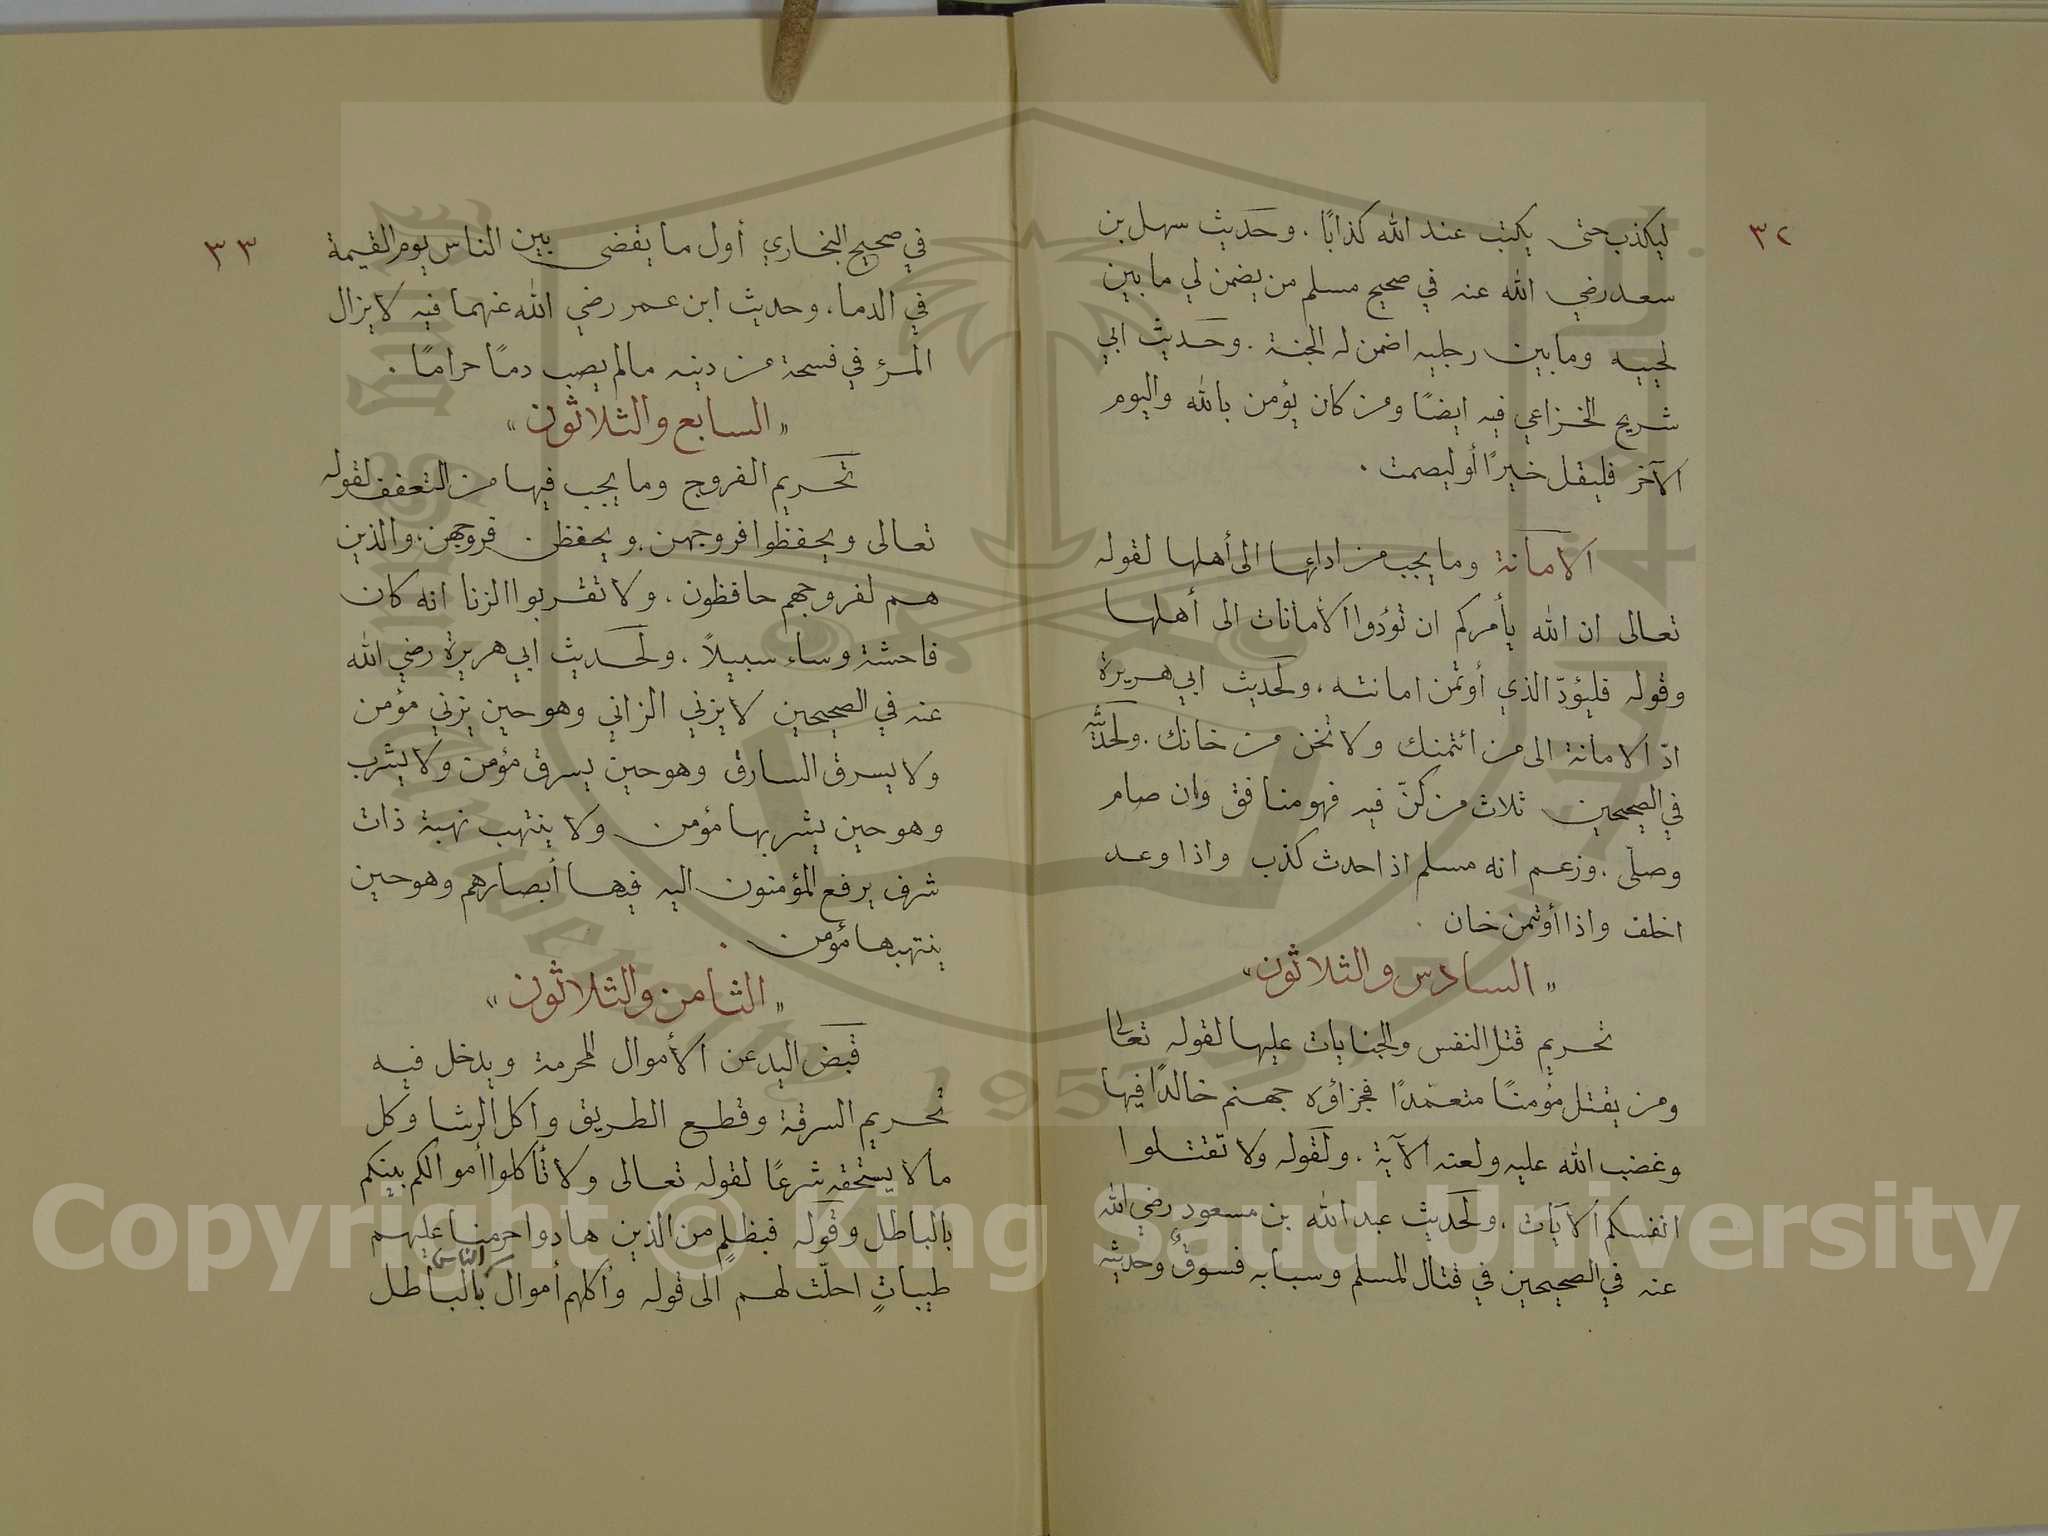 ٣٢
ليكذب حتى يكتب عند الله كذابًا . وحديث سهل بن
سعد رضي الله عنه في صحيح مسلم من يضمن لي ما بين
لحييه وما بين رجليه اضمن له الجنة . وحديث ابي
شريح الخزاعي فيه ايضًا ومن كان يؤمن بالله واليوم
الآخر فليقل خيرًا أو ليصمت .
الامانة وما يجب من ادائها الى أهلها لقوله
تعالى ان الله يأمركم ان تؤدوا الأمانات الى أهلها
وقوله فليؤدّ الذي أوتمن امانته ، ولحديث ابي هريرة
ادّ الامانة الى من ائتمنك ولا تخن من خانك . ولحديثه
في الصحيحين ثلاث من كنّ فيه فهو منافق وان صام
وصلّى . وزعم انه مسلم اذا حدث كذب واذا وعد
اخلف واذا أوتمن خان .
« السادس والثلاثون »
تحريم قتل النفس والجنايات عليها لقوله تعالى
ومن يقتل مؤمنًا متعمّدًا فجزاؤه جهنم خالدًا فيها
وغضب الله عليه ولعنه الآية . ولقوله ولا تقتلوا
انفسكم الآيات . ولحديث عبد الله بن مسعودٍ رضي الله
عنه في الصحيحين في قتال المسلم وسبابه فسوقٌ وحديثه
٣٣
في صحيح البخاري أول ما يقضى بين الناس يوم القيمة
في الدما ، وحديث ابن عمر رضي الله عنهما فيه لا يزال
المرؤ في فسحة من دينه مالم يصب دمًا حرامًا .
« السابع والثلاثون »
تحريم الفروج وما يجب فيها من التعفف لقوله
تعالى ويحفظوا فروجهن . ويحفظن فروجهن ، والذين
هم لفروجهم حافظون . ولا تقربوا الزنا انه كان
فاحشة وساء سبيلاً . ولحديث ابي هريرة رضي الله
عنه في الصحيحين لا يزني الزاني وهو حين يزني مؤمن
ولا يسرق السارق وهو حين يسرق مؤمن ولا يشرب
وهو حين يشربها مؤمن ولا ينتهب نهبة ذات
شرف يرفع المؤمنون اليه فيها أبصارهم وهو حين
ينتهبها مؤمن .
« الثامن والثلاثون »
قبض اليد عن الأموال المحرمة ويدخل فيه
تحريم السرقة وقطع الطريق وأكل الرشا وكل
مالا يستحقه شرعًا لقوله تعالى ولا تأكلوا أموالكم بينكم
بالباطل وقوله فبظلمٍ من الذين هادوا حرمنا عليهم
الناس
طيباتٍ احلّت لهم الى قوله وأكلهم أموال بالباطل
Copyright © King Saud University
1957